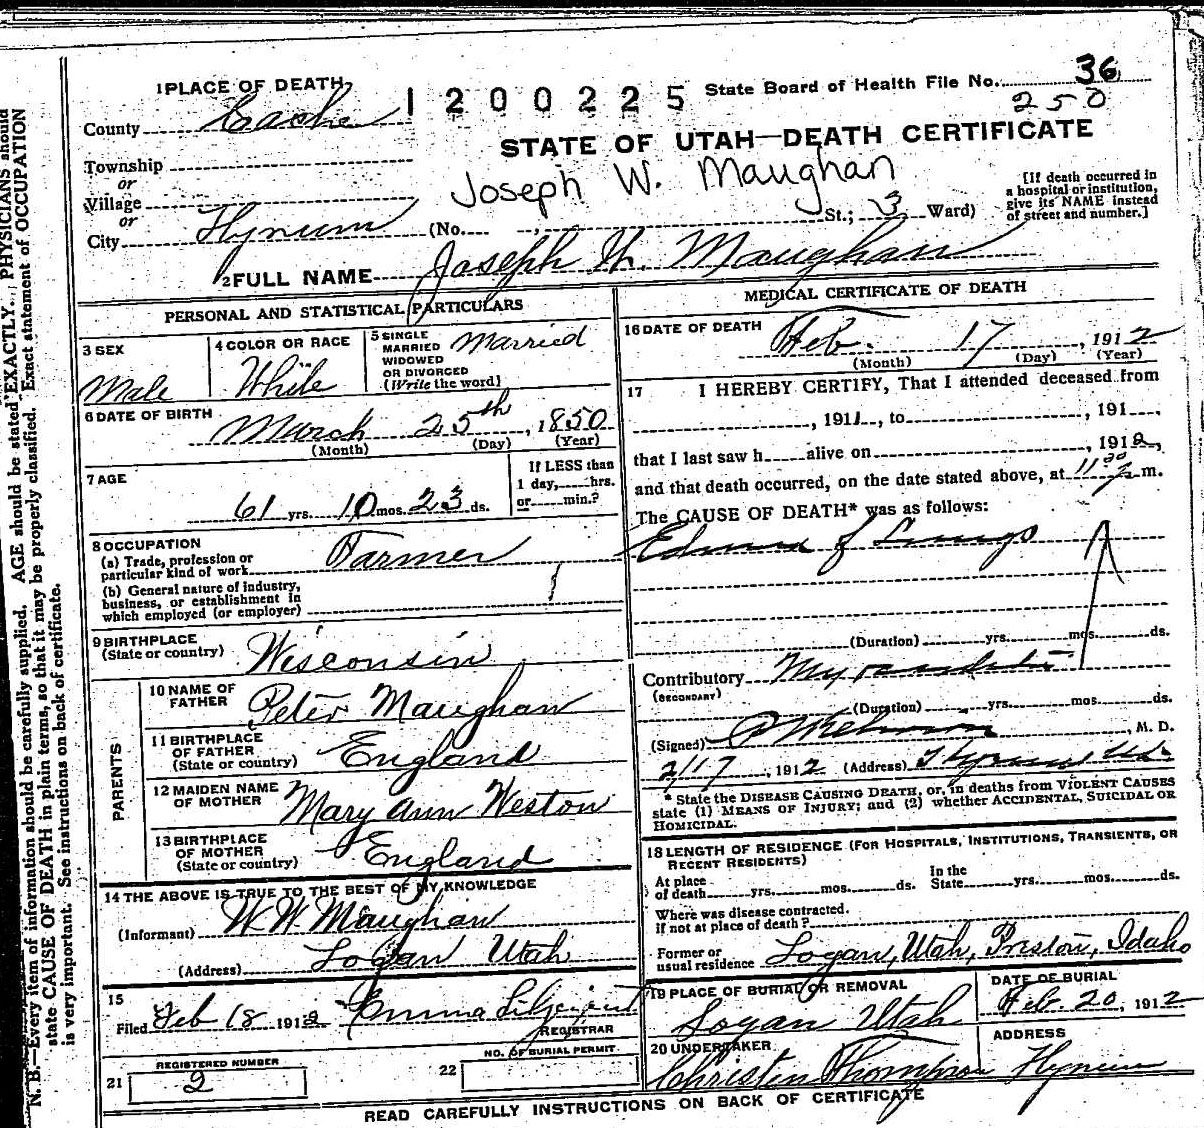 1 PLACE OF DEATH
1 2 0 0 2 2 5
State Board of Health File No. 36
250
County Cache
STATE OF UTAH—DEATH CERTIFICATE
Township
or
Village
or
City Hyrum
Joseph W. Maughan
(No. , St.; 3 Ward)
[If death occurred in
a hospital or institution,
give its NAME instead
of street and number.]
2 FULL NAME Joseph W. Maughan
PERSONAL AND STATISTICAL PARTICULARS
3 SEX
Male
4 COLOR OR RACE
White
5 SINGLE
MARRIED
WIDOWED
OR DIVORCED
(Write the word)
Married
6 DATE OF BIRTH
March 25th, 1850
(Month) (Day) (Year)
7 AGE
61 yrs. 10 mos. 23 ds.
If LESS than
1 day, hrs.
or min.?
8 OCCUPATION
(a) Trade, profession or
particular kind of work
Farmer
(b) General nature of industry,
business, or establishment in
which employed (or employer)
9 BIRTHPLACE
(State or country)
Wisconsin
PARENTS
10 NAME OF
FATHER
Peter Maughan
11 BIRTHPLACE
OF FATHER
(State or country)
England
12 MAIDEN NAME
OF MOTHER
Mary Ann Weston
13 BIRTHPLACE
OF MOTHER
(State or country)
England
14 THE ABOVE IS TRUE TO THE BEST OF MY KNOWLEDGE
(Informant) W. W. Maughan
(Address) Logan Utah
15
Filed Feb 18 1912 Emma Liljenquist
REGISTRAR
REGISTERED NUMBER
21 2
NO. OF BURIAL PERMIT
22
MEDICAL CERTIFICATE OF DEATH
16 DATE OF DEATH
Feb. 17, 1912
(Month) (Day) (Year)
17 I HEREBY CERTIFY, That I attended deceased from
, 1911, to , 191 ,
that I last saw h alive on , 1912,
and that death occurred, on the date stated above, at 11 m.
The CAUSE OF DEATH* was as follows:
Edema of Lungs
(Duration) yrs. mos. ds.
Contributory
(SECONDARY)
(Duration) yrs. mos. ds.
(Signed) , M. D.
2/17, 1912 (Address) Hyrum Ut.
* State the DISEASE CAUSING DEATH, or, in deaths from VIOLENT CAUSES
state (1) MEANS OF INJURY; and (2) whether ACCIDENTAL, SUICIDAL OR
HOMICIDAL.
18 LENGTH OF RESIDENCE (FOR HOSPITALS, INSTITUTIONS, TRANSIENTS, OR
RECENT RESIDENTS)
At place
of death yrs. mos. ds.
In the
State yrs. mos. ds.
Where was disease contracted.
if not at place of death?
Former or
usual residence Logan, Utah, Preston, Idaho
19 PLACE OF BURIAL OR REMOVAL
Logan Utah
DATE OF BURIAL
Feb. 20, 1912
20 UNDERTAKER
Christen Thompson
ADDRESS
Hyrum
READ CAREFULLY INSTRUCTIONS ON BACK OF CERTIFICATE
N. B.—Every item of information should be carefully supplied. AGE should be stated EXACTLY. PHYSICIANS should
state CAUSE OF DEATH in plain terms, so that it may be properly classified. Exact statement of OCCUPATION
is very important. See instructions on back of certificate.